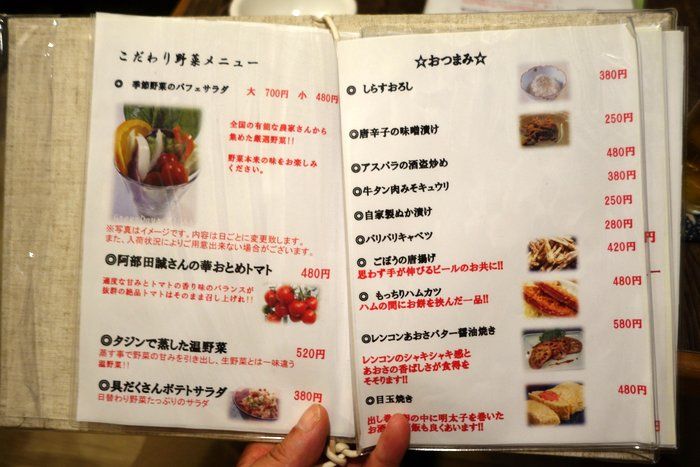 こだわり野菜メニュー
◎ 季節野菜のパフェサラダ 大 700円 小 480円
全国の有能な農家さんから
集めた厳選野菜!!
野菜本来の味をお楽しみ
ください。
※写真はイメージです。内容は日ごとに変更致します。
また、入荷状況によりご用意出来ない場合がございます。
◎阿部田誠さんの華おとめトマト 480円
適度な甘みとトマトの香り味のバランスが
抜群の絶品トマトはそのまま召し上げれ!!
◎タジンで蒸した温野菜 520円
蒸す事で野菜の甘みを引き出し、生野菜とは一味違う
温野菜!!
◎具だくさんポテトサラダ 380円
日替わり野菜たっぷりのサラダ
☆おつまみ☆
◎ しらすおろし 380円
◎唐辛子の味噌漬け 250円
◎アスパラの酒盗炒め 480円
◎牛タン肉みそキュウリ 380円
◎自家製ぬか漬け 250円
◎パリパリキャベツ 280円
◎ ごぼうの唐揚げ 420円
思わず手が伸びるビールのお共に!!
◎ もっちりハムカツ 480円
ハムの間にお餅を挟んだ一品!!
◎レンコンあおさバター醤油焼き 580円
レンコンのシャキシャキ感と
あおさの香ばしさが食得を
そそります!!
◎目玉焼き 480円
出し巻
の中に明太子を巻いた
お酒
飯も良くあいます!!
円